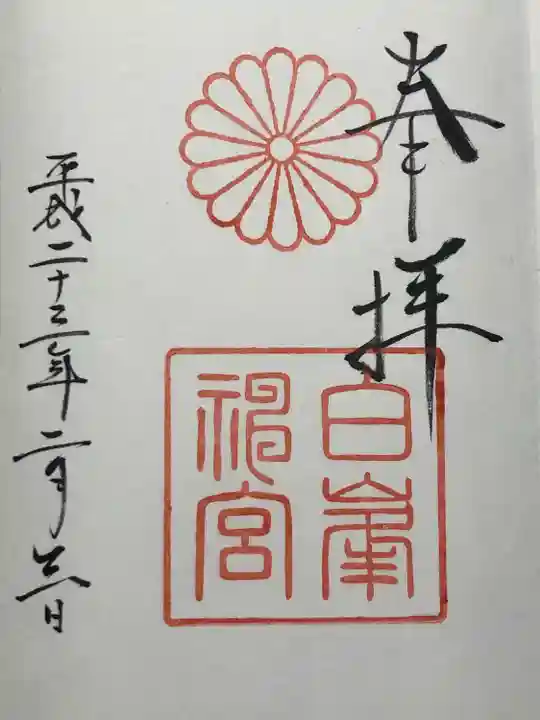 奉拝
白峯
神宮
平成二十三年二月日